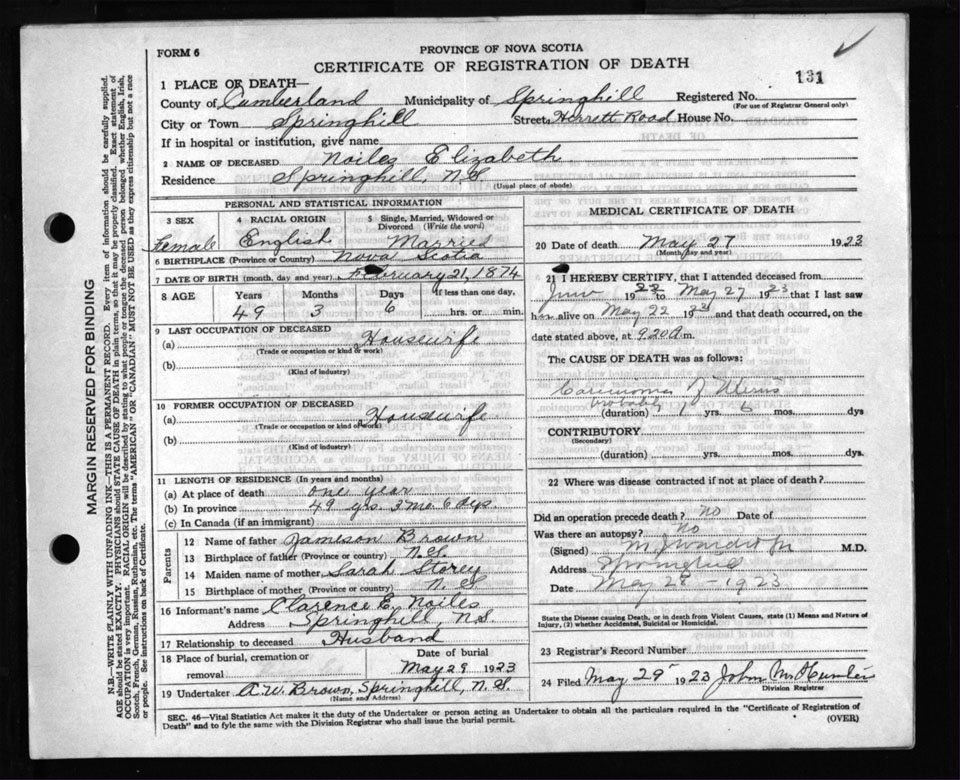 FORM 6
PROVINCE OF NOVA SCOTIA
CERTIFICATE OF REGISTRATION OF DEATH
131
1 PLACE OF DEATH—
County of Cumberland Municipality of Springhill Registered No.
(For use of Registrar General only)
City or Town Springhill Street Herrett Road House No.
If in hospital or institution, give name
2 NAME OF DECEASED Noiles Elizabeth
Residence Springhill, N.S.
(Usual place of abode)
PERSONAL AND STATISTICAL INFORMATION
3 SEX 4 RACIAL ORIGIN 5 Single, Married, Widowed or
Divorced (Write the word)
Female English Married
6 BIRTHPLACE (Province or Country) Nova Scotia
7 DATE OF BIRTH (month, day and year) February 21, 1874
8 AGE Years Months Days If less than one day,
49 3 6 hrs. or min.
9 LAST OCCUPATION OF DECEASED
(a) Housewife
(Trade or occupation or kind of work)
(b)
(Kind of industry)
10 FORMER OCCUPATION OF DECEASED
(a) Housewife
(Trade or occupation or kind of work)
(b)
(Kind of industry)
11 LENGTH OF RESIDENCE (In years and months)
(a) At place of death one year
(b) In province 49 yrs. 3 mo. 6 dys.
(c) In Canada (if an immigrant)
Parents
12 Name of father Jameson Brown
13 Birthplace of father (Province or country) N.S.
14 Maiden name of mother Sarah Storey
15 Birthplace of mother (Province or country) N.S.
16 Informant's name Clarence E. Noiles
Address Springhill, N.S.
17 Relationship to deceased Husband
18 Place of burial, cremation or Date of burial
removal May 29 1923
19 Undertaker A.W. Brown, Springhill, N.S.
(Name and Address)
MEDICAL CERTIFICATE OF DEATH
20 Date of death May 27 1923
(Month, day and year)
21 I HEREBY CERTIFY, that I attended deceased from
1922 to May 27 1923 that I last saw
alive on May 22 19 and that death occurred, on
date stated above, at 9.20 a.m.
The CAUSE OF DEATH was as follows:
Carcinoma of Uterus
probably
(duration) 1 yrs. 6 mos. dys
CONTRIBUTORY
(Secondary)
(duration) yrs. mos. dys.
22 Where was disease contracted if not at place of death?
Did an operation precede death? No Date of
Was there an autopsy? No
(Signed) M.D.
Address Springhill
Date May 28 - 1923
State the Disease causing Death, or in death from Violent Causes, state (1) Means and Nature of
Injury, (2) whether Accidental, Suicidal or Homicidal.
23 Registrar's Record Number
24 Filed May 29 1923 John
Division Registrar
SEC. 46—Vital Statistics Act makes it the duty of the Undertaker or person acting as Undertaker to obtain all the particulars required in the "Certificate of Registration of
Death" and to fyle the same with the Division Registrar who shall issue the burial permit.
(OVER)
MARGIN RESERVED FOR BINDING
N.B.—WRITE PLAINLY WITH UNFADING INK—THIS IS A PERMANENT RECORD. Every item of information should be carefully supplied.
AGE should be stated EXACTLY. PHYSICIANS should STATE CAUSE OF DEATH in plain terms, so that it may be properly classified. Exact statement of
OCCUPATION is very important. RACIAL ORIGIN will be described by stating to what people or tongue the deceased person belonged whether English, Irish,
Scotch, French, German, Russian, Ruthenian, etc. The terms "AMERICAN" OR "CANADIAN" MUST NOT BE USED as they express citizenship but not a race
or people. See instructions on back of Certificate.